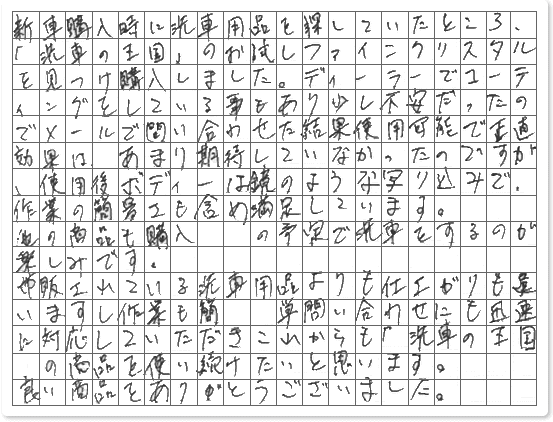 新車購入時に洗車用品を探していたところ、
「洗車の王国」のお試しファインクリスタル
を見つけ購入しました。ディーラーでコーテ
ィングをしている事もあり少し不安だったの
でメールで問い合わせた結果使用可能で正直
効果は、あまり期待していなかったのですが
、使用後ボディーは鏡のような写り込みで、
作業の簡易さも含め満足しています。
他の商品も購入の予定で洗車をするのが
楽しみです。
市販されている洗車用品よりも仕上がりも
いますし作業も簡単問い合わせにも迅速
に対応していただきこれからも「洗車の王国
の商品を使い続けたいと思います。
良い商品をありがとうございました。